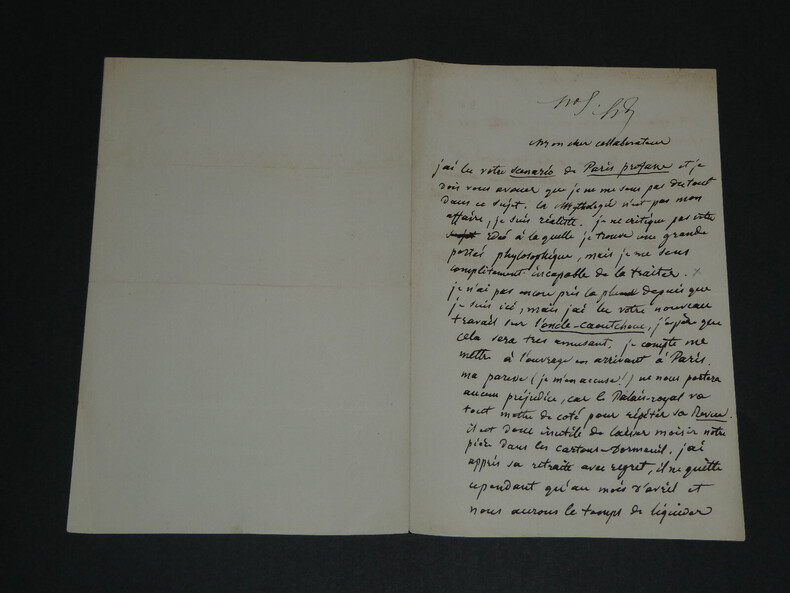 Mon cher collaborateur
j'ai lu votre scenario de Paris profane et je
dois vous avouer que je ne me sens pas du tout
dans ce sujet. la Mythologie n'est pas mon
affaire, je suis réaliste. je ne critique pas votre
idée à la quelle je trouve une grande
porteé phylosophique, mais je me sens
complètement incapable de la traiter.
je n'ai pas encore pris la plume depuis que
je suis ici, mais j'ai lu votre nouveau
travail sur l'oncle-caoutchouc, j'espère que
cela sera tres amusant. je compte me
mettre à l'ouvrage en arrivant à Paris.
ma paresse (je m'en accuse!) ne nous portera
aucun préjudice, car le Palais-royal va
tout mettre de coté pour répéter sa Revue.
il est donc inutile de laisser moisir notre
pièce dans les cartons-Dormeuil. j'ai
appris sa retraite avec regret, il ne quitte
cependant qu'au mois d'avril et
nous aurons le temps de liquider